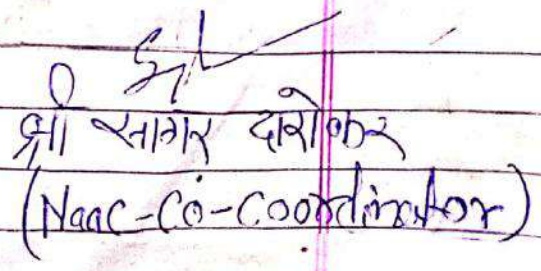 श्री सागर दारोकर
(Naac-Co-Coordinator)